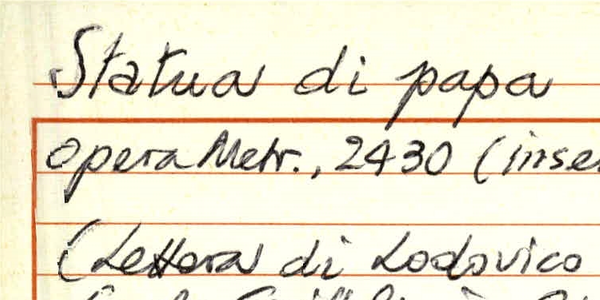 Statua di papa
Opera Metr., 2430 (inse
(Lettera di Lodovico